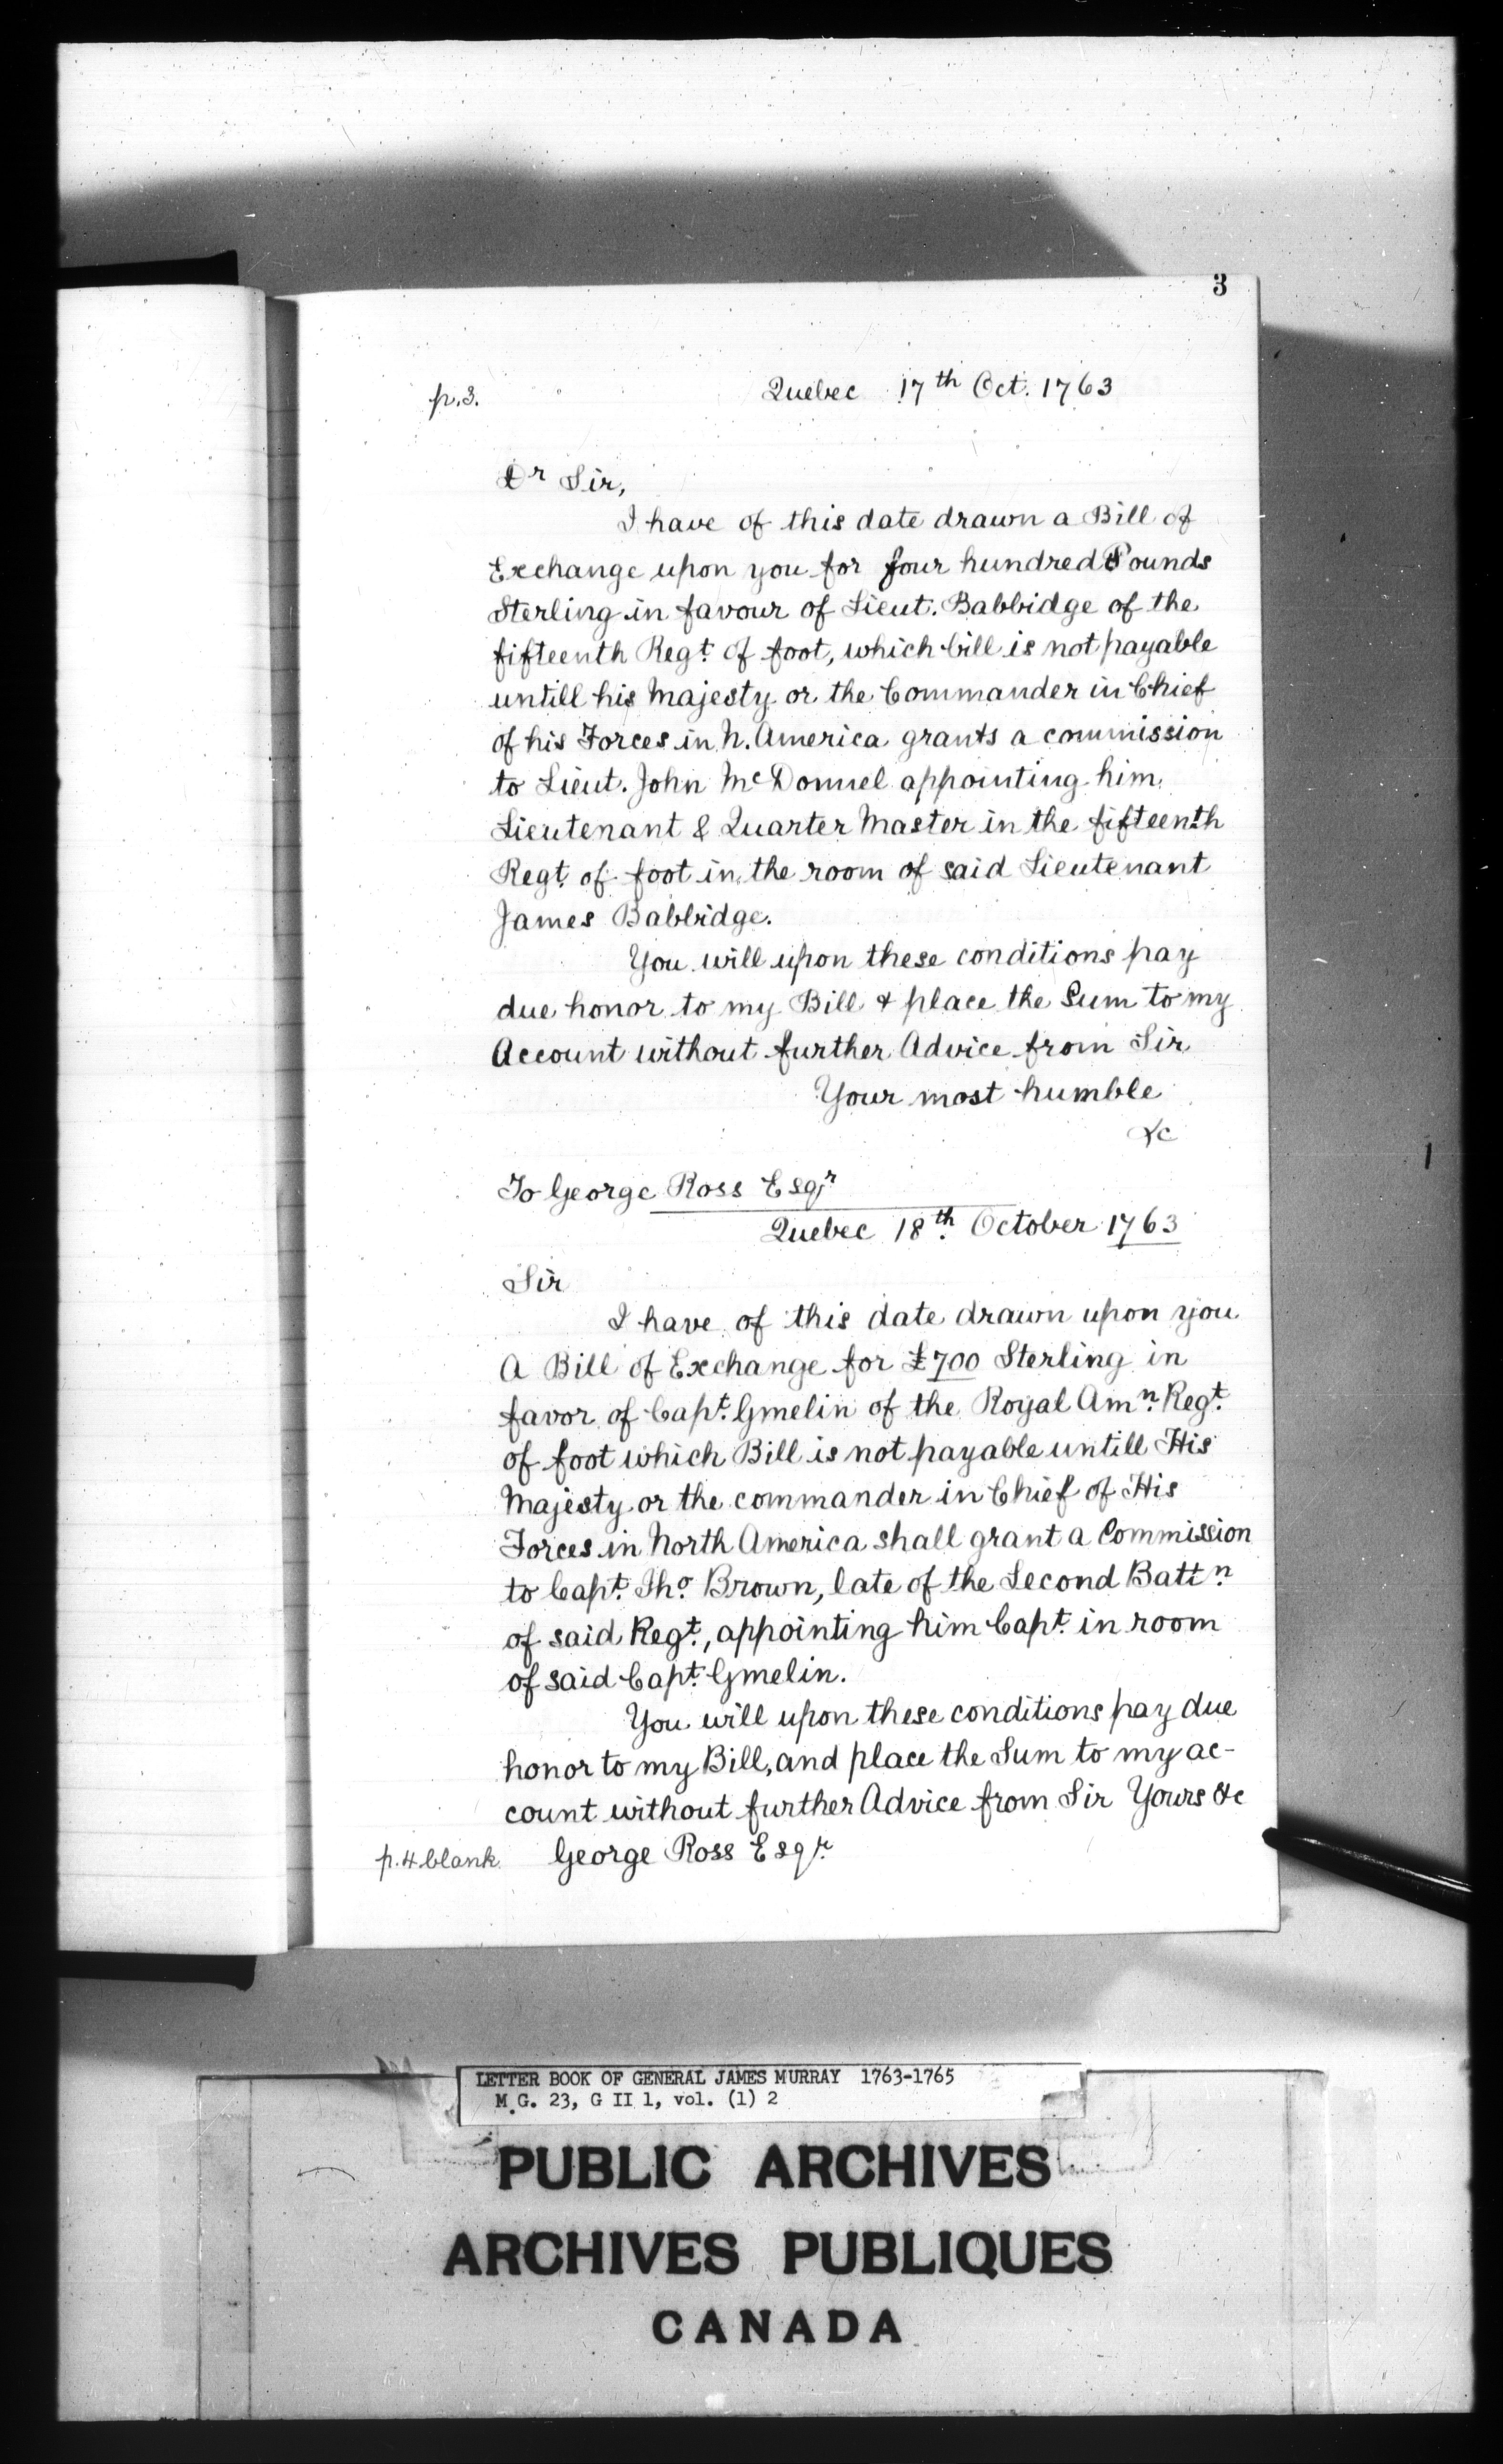 3
p.3.
Quebec 17th Oct. 1763
Dr Sir,
I have of this date drawn a Bill of
Exchange upon you for four hundred Pounds
Sterling in favour of Lieut. Babbidge of the
fifteenth Regt. of foot, which bill is not payable
untill his Majesty or the Commander in Chief
of his Forces in N. America grants a commission
to Lieut. John McDonnel appointing him
Lieutenant & Quarter Master in the fifteenth
Regt. of foot in the room of said Lieutenant
James Babbidge.
You will upon these conditions pay
due honor to my Bill & place the Sum to my
Account without further Advice from Sir
Your most humble
&c
To George Ross Esqr
Quebec 18th. October 1763
Sir
I have of this date drawn upon you
A Bill of Exchange for £700 Sterling in
favor of Capt. Gmelin of the Royal Amn. Regt.
of foot which Bill is not payable untill His
Majesty or the commander in Chief of His
Forces in North America shall grant a Commission
to Capt. Tho. Brown, late of the Second Battn.
of said Regt., appointing him Capt. in room
of said Capt. Gmelin.
You will upon these conditions pay due
honor to my Bill, and place the Sum to my ac-
count without further Advice from Sir Yours &c
p.4 blank. George Ross Esqr.
LETTER BOOK OF GENERAL JAMES MURRAY 1763-1765
M.G. 23, G II 1, vol. (1) 2
PUBLIC ARCHIVES
ARCHIVES PUBLIQUES
CANADA